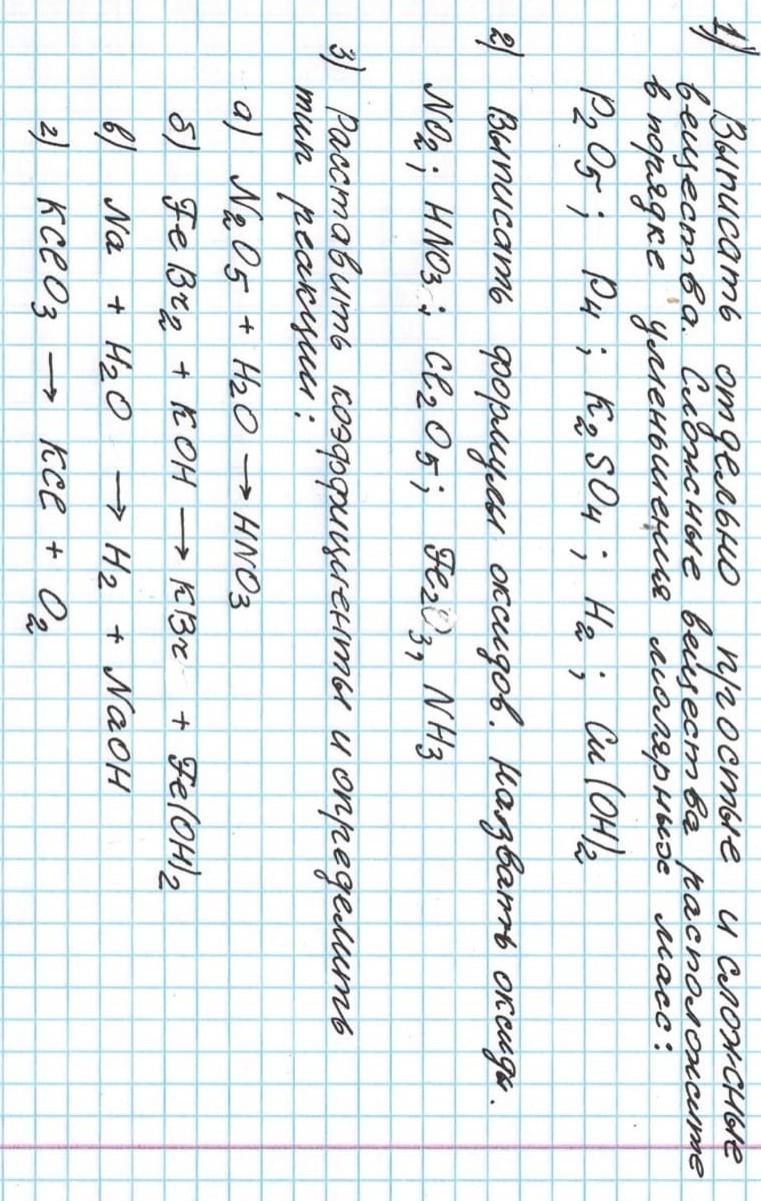 1) Выписать отдельно простые и сложные
вещества. Сложные вещества расположите
в порядке уменьшения молярных масс:
P2O5; P4; K2SO4; H2; Cu(OH)2
2) Выписать формулы оксидов. Назвать оксиды.
NO2; HNO3; Cl2O5; Fe2O3, NH3
3) Расставить коэффициенты и определить
тип реакции:
а) N2O5 + H2O → HNO3
б) FeBr2 + KOH → KBr + Fe(OH)2
в) Na + H2O → H2 + NaOH
г) KClO3 → KCl + O2